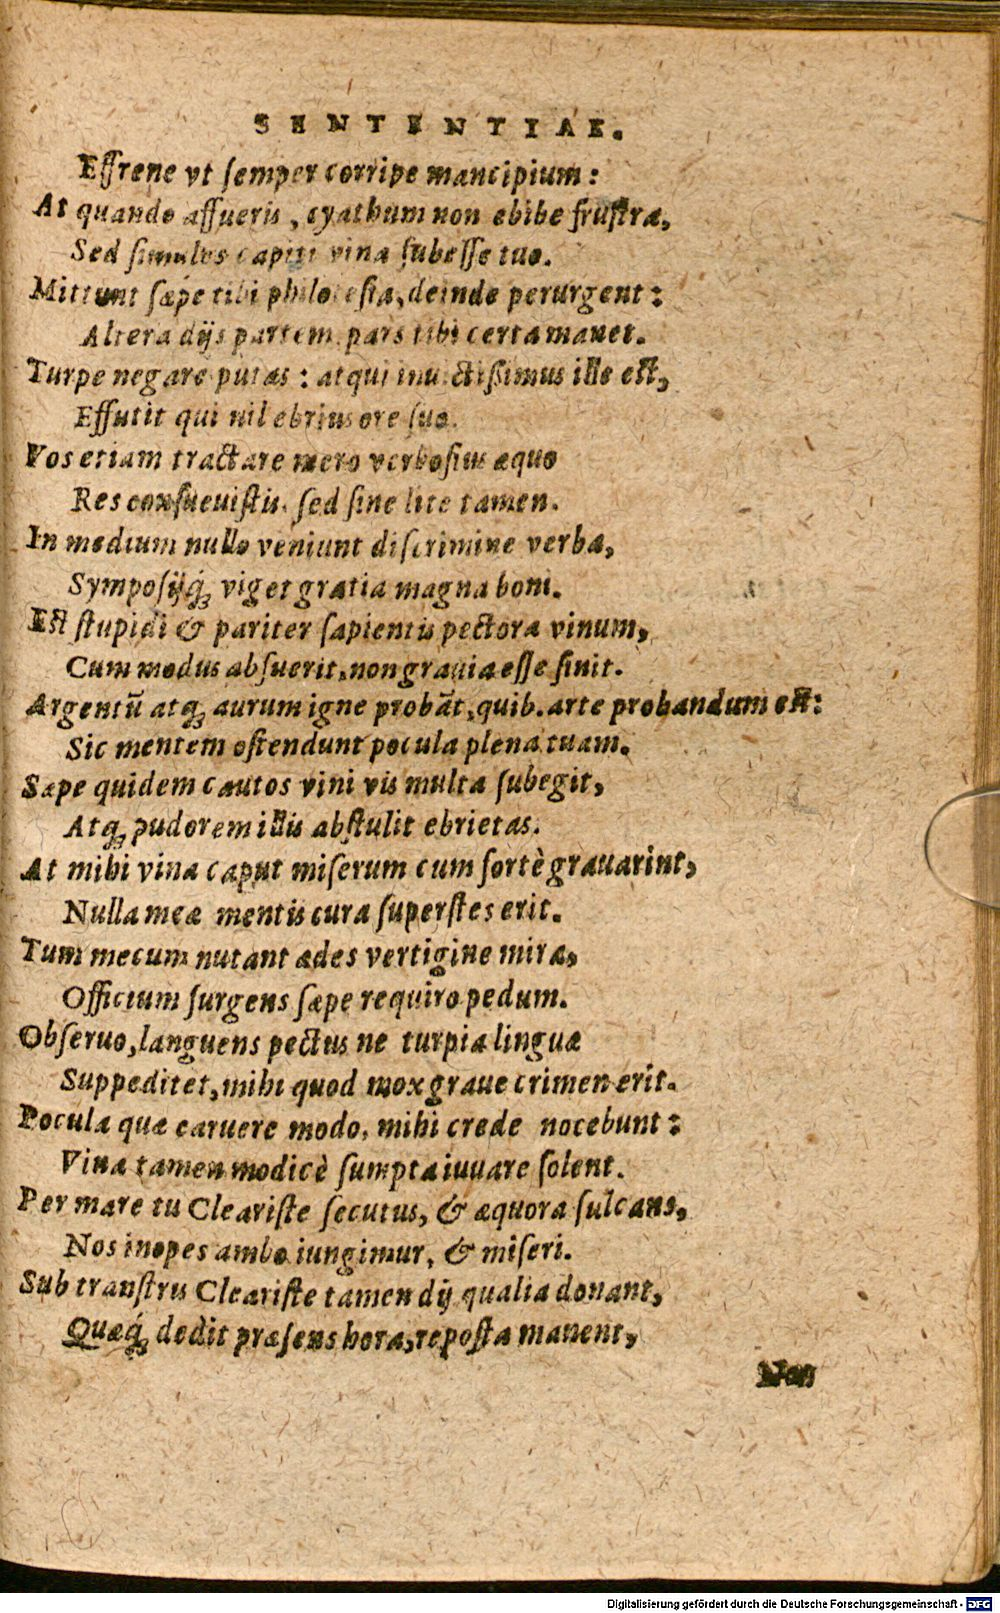 SENTENTIAE.
Effrene vt ſemper corripe mancipium:
At quando aſſueris, cyathum non ebibe fruſtra,
Sed ſimules capiti vina ſubeſſe tuo.
Mittunt ſæpe tibi philoteſia, deinde perurgent:
Altera dijs partem, pars tibi certa manet.
Turpe negare putas: atqui inuictiſsimus ille eſt,
Effutit qui nil ebrius ore ſuo.
Vos etiam tractare mero verboſius æquo
Res conſueuiſtis, ſed ſine lite tamen.
In medium nullo veniunt diſcrimine verba,
Sympoſijq́; viget gratia magna boni.
Eſt ſtupidi & pariter ſapientis pectora vinum,
Cum modus abfuerit, non grauia eſſe ſinit.
Argentū atq; aurum igne probāt, quib. arte probandum eſt:
Sic mentem oſtendunt pocula plena tuam.
Sæpe quidem cautos vini vis multa ſubegit,
Atq; pudorem illis abſtulit ebrietas.
At mihi vina caput miſerum cum fortè grauarint,
Nulla meæ mentis cura ſuperſtes erit.
Tum mecum nutant ædes vertigine mira,
Officium ſurgens ſæpe requiro pedum.
Obſeruo, languens pectus ne turpia linguæ
Suppeditet, mihi quod mox graue crimen erit.
Pocula quæ caruere modo, mihi crede nocebunt:
Vina tamen modicè ſumpta iuuare ſolent.
Per mare tu Cleariſte ſecutus, & æquora ſulcans,
Nos inopes ambo iungimur, & miſeri.
Sub tranſtris Cleariſte tamen dij qualia donant,
Quæq́; dedit præſens hora, repoſta manent,
Non
Digitalisierung gefördert durch die Deutsche Forschungsgemeinschaft - DFG